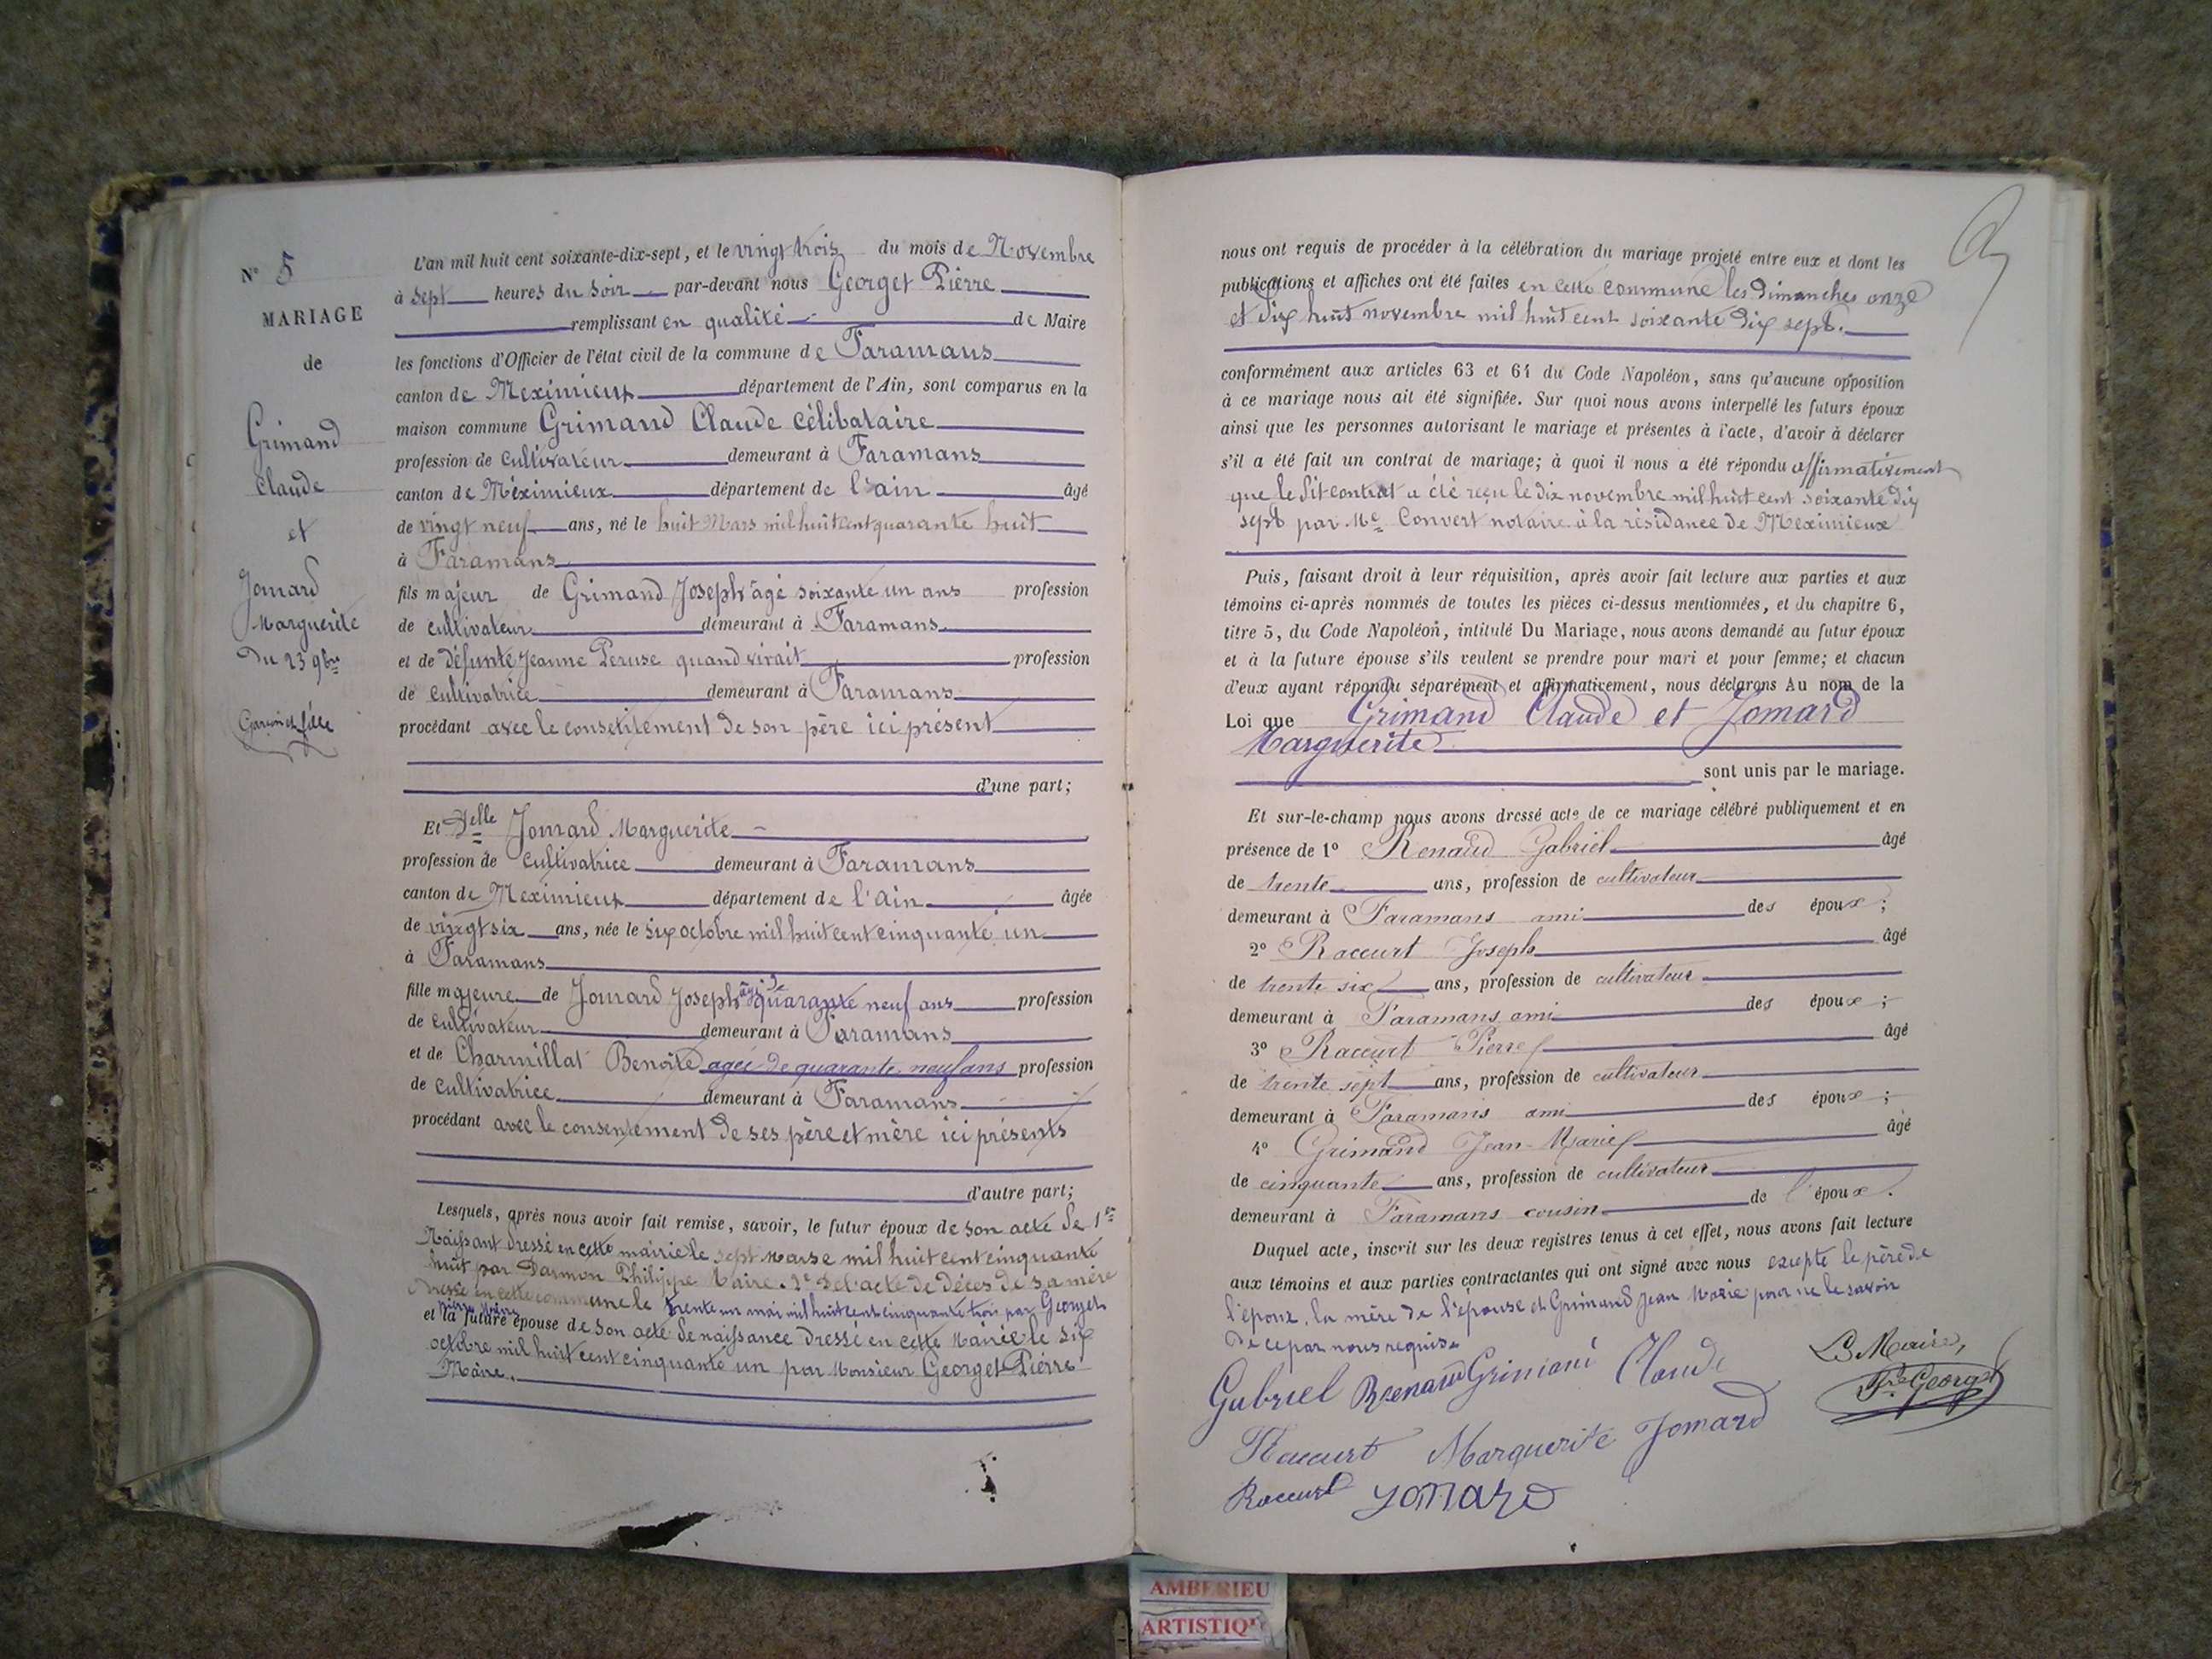 N° 5
MARIAGE
de
Grimand
Claude
et
Jomard
Marguerite
du 23 9bre
Garçon et fille
L'an mil huit cent soixante-dix-sept, et le vingt trois du mois de Novembre
à sept heures du soir par-devant nous Georget Pierre
remplissant en qualité de Maire
les fonctions d'Officier de l'état civil de la commune de Faramans
canton de Meximieux département de l'Ain, sont comparus en la
maison commune Grimand Claude célibataire
profession de cultivateur demeurant à Faramans
canton de Méximieux département de l'ain âgé
de vingt neuf ans, né le huit Mars mil huit cent quarante huit
à Faramans
fils majeur de Grimand Joseph âgé soixante un ans profession
de cultivateur demeurant à Faramans
et de défunte Jeanne Peruse quand vivait profession
de cultivatrice demeurant à Faramans
procédant avec le consentement de son père ici présent
d'une part;
Et Delle Jomard Marguerite
profession de cultivatrice demeurant à Faramans
canton de Meximieux département de l'ain âgée
de vingt six ans, née le six octobre mil huit cent cinquante un
à Faramans
fille majeure de Jomard Joseph âgé de quarante neuf ans profession
de cultivateur demeurant à Faramans
et de Charmillat Benoîte agée de quarante neuf ans profession
de cultivatrice demeurant à Faramans
procédant avec le consentement de ses père et mère ici présents
d'autre part;
Lesquels, après nous avoir fait remise, savoir, le futur époux de son acte de 1er
Naissant dressé en cette mairie le sept Marse mil huit cent cinquante
huit par Darmon Philippe Maire. 2° de l'acte de déces de sa mère
dressé en cette commune le trente un mai mil huit cent cinquante trois par Georget
Pierre Maire
et la future épouse de son acte de naissance dressé en cette Mairie le six
octobre mil huit cent cinquante un par Monsieur Georget Pierre
Maire.
nous ont requis de procéder à la célébration du mariage projeté entre eux et dont les
publications et affiches ont été faites en cette commune les dimanches onze
et dix huit novembre mil huit cent soixante dix sept.
conformément aux articles 63 et 64 du Code Napoléon, sans qu'aucune opposition
à ce mariage nous ait été signifiée. Sur quoi nous avons interpellé les futurs époux
ainsi que les personnes autorisant le mariage et présentes à l'acte, d'avoir à déclarer
s'il a été fait un contrat de mariage; à quoi il nous a été répondu affirmativement
que le dit contrat a été reçu le dix novembre mil huit cent soixante dix
sept par Me Convert notaire à la résidance de Meximieux
Puis, faisant droit à leur réquisition, après avoir fait lecture aux parties et aux
témoins ci-après nommés de toutes les pièces ci-dessus mentionnées, et du chapitre 6,
titre 5, du Code Napoléon, intitulé Du Mariage, nous avons demandé au futur époux
et à la future épouse s'ils veulent se prendre pour mari et pour femme; et chacun
d'eux ayant répondu séparément et affirmativement, nous déclarons Au nom de la
Loi que Grimand Claude et Jomard
Marguerite
sont unis par le mariage.
Et sur-le-champ nous avons dressé acte de ce mariage célébré publiquement et en
présence de 1° Renaud Gabriel âgé
de trente ans, profession de cultivateur
demeurant à Faramans ami des époux;
2° Raccurt Joseph âgé
de trente six ans, profession de cultivateur
demeurant à Faramans ami des époux;
3° Raccurt Pierre âgé
de trente sept ans, profession de cultivateur
demeurant à Faramans ami des époux;
4° Grimand Jean-Marie âgé
de cinquante ans, profession de cultivateur
demeurant à Faramans cousin de l'époux.
Duquel acte, inscrit sur les deux registres tenus à cet effet, nous avons fait lecture
aux témoins et aux parties contractantes qui ont signé avec nous excepté le père de
l'époux, la mère de l'épouse et Grimand Jean Marie pour ne le savoir
de ce par nous requis
Gabriel Renaud Grimand Claude Le Maire,
Pre Georget
Raccurt Marguerite Jomard
Raccurt Jomard
AMBERIEU
ARTISTIQU